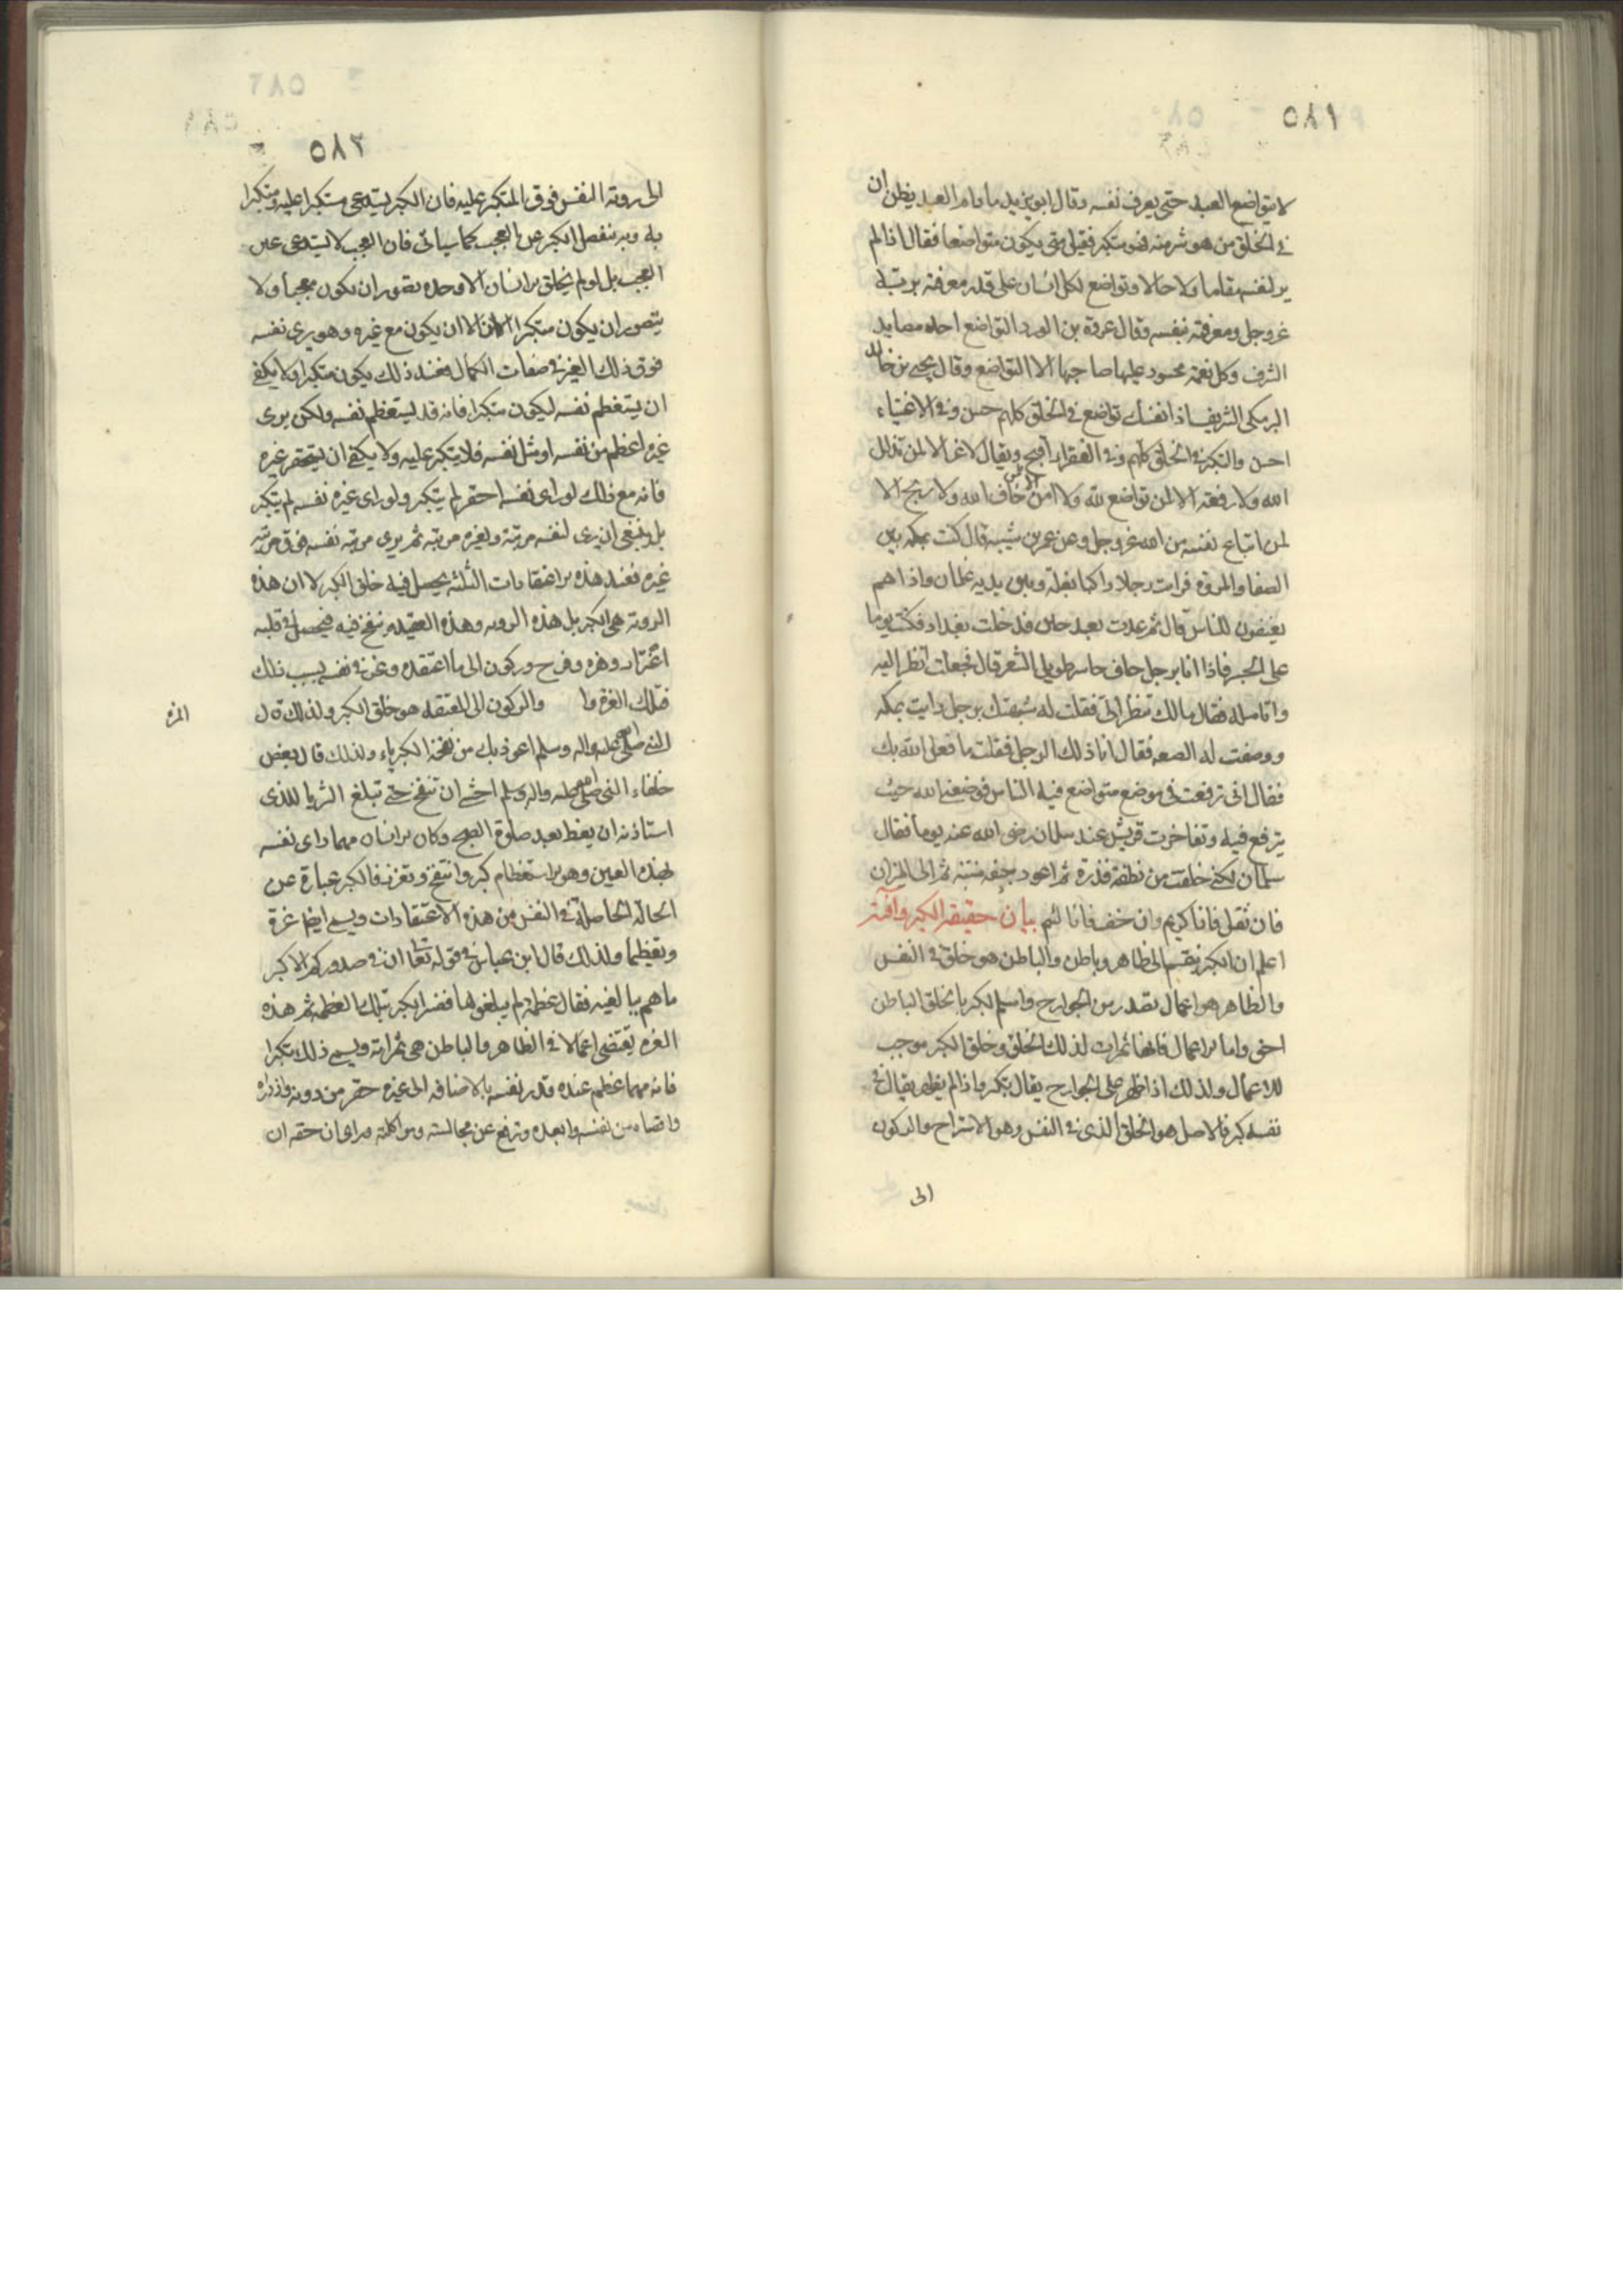 ٥٨١
لا يتواضع العبد حتى يعرف نفسه وقال ابو يزيد ما دام العبد يظن ان
في الخلق من هو شر منه فهو متكبر فقيل متى يكون متواضعا فقال اذا لم
ير لنفسه مقاما ولا حالا وتواضع لكل انسان على قدر معرفته بربه
عز وجل ومعرفته بنفسه وقال عروة بن الورد التواضع احد مصايد
الشرف وكل نعمة محسود عليها صاحبها الا التواضع وقال يحيى بن خالد
البرمكي الشريف اذا تواضع في الخلق كلهم حسن وفي الاغنياء
احسن والتكبر في الخلق كلهم وفي الفقراء اقبح ويقال لا عز الا لمن تذلل
الله ولا رفعة الا لمن تواضع لله ولا امن الا لمن خاف الله ولا ربح الا
لمن ابتاع نفسه من الله عز وجل وعن عمر بن شيبه قال كنت بمكه بين
الصفا والمروة فرايت رجلا راكبا بغلة وبين يديه غلمان واذا هم
يعنفون للناس قال ثم عدت بعد حين فدخلت بغداد فكنت يوما
على الجسر فاذا انا برجل حاف حاسر طويل الشعر قال فجعلت انظر اليه
واتامله فقال مالك تنظر الي فقلت له شبهتك برجل رايت بمكه
ووصفت له الصفه فقال انا ذلك الرجل فقلت ما فعل الله بك
فقال اني ترفعت في موضع متواضع فيه الناس فوضعني الله حيث
يترفع فيه وتفاخرت قريش عند سلمان رضي الله عنه يوما فقال
سلمان لكني خلقت من نطفة قذرة ثم اعود جيفه منتنه ثم الى الميزان
فان ثقل فانا كريم وان خف فانا لئيم بيان حقيقة الكبر وآفته
اعلم ان الكبر ينقسم الى ظاهر وباطن والباطن هو خلق في النفس
والظاهر هو اعمال تصدر من الجوارح واسم الكبر بالخلق الباطن
احق واما الاعمال فانها ثمرات لذلك الخلق وخلق الكبر موجب
للاعمال ولذلك اذا ظهر على الجوارح يقال تكبر واذا لم يظهر يقال في
نفسه كبر فالاصل هو الخلق الذي في النفس وهو الاسترواح والركون
الى
٥٨٢
الى روية النفس فوق المتكبر عليه فان الكبر يستدعي متكبرا عليه ومتكبرا
به وبه ينفصل الكبر عن العجب كما سياتي فان العجب لا يستدعي غير
العجب بل لو لم يخلق الانسان الا وحده تصور ان يكون معجبا ولا
يتصور ان يكون متكبرا الا ان يكون مع غيره وهو يرى نفسه
فوق ذلك الغير في صفات الكمال فعند ذلك يكون متكبرا ولا يكفي
ان يستعظم نفسه ليكون متكبرا فانه قد يستعظم نفسه ولكن يرى
غيره اعظم من نفسه او مثل نفسه فلا يتكبر عليه ولا يكفي ان يستحقر غيره
فانه مع ذلك لو راى نفسه احقر لم يتكبر ولو راى غيره نفسه لم يتكبر
بل ينبغي ان يرى لنفسه مرتبة ولغيره مرتبه ثم يرى مرتبه نفسه فوق مرتبة
غيره فعند هذه الاعتقادات الثلثه يحصل فيه خلق الكبر لا ان هذه
الروية هي الكبر بل هذه الرويه وهذه العقيده تنفخ فيه فيحصل في قلبه
اعتزاز وهزه وفرح وركون الى ما اعتقده وعز في نفسه بسبب ذلك
فتلك العزة والركون الى المعتقد هو خلق الكبر ولذلك قال
الهزه
النبي صلى الله عليه واله وسلم اعوذ بك من نفخة الكبرياء ولذلك قال بعض
خلفاء النبي صلى الله عليه واله وسلم اخشى ان تنتفخ حتى تبلغ الثريا للذي
استاذنه ان يعظ بعد صلوة الصبح وكان الانسان مهما راى نفسه
بهذه العين وهو الاستعظام كبر وانتفخ وتعزز فالكبر عبارة عن
الحالة الحاصلة في النفس من هذه الاعتقادات ويسمى ايضا عزة
وتعظما ولذلك قال ابن عباس في قوله تعالى ان في صدورهم الا كبر
ما هم ببالغيه فقال عظمة لم يبلغوها ففسر الكبر بتلك العظمه ثم هذه
العزه تقتضي اعمالا في الظاهر والباطن هي ثمراته ويسمى ذلك تكبرا
فانه مهما عظم عنده قدر نفسه بالاضافه الى غيره حقر من دونه وازدراه
واقصاه من نفسه وابعده وترفع عن مجالسته ومواكلته وراى ان حقه ان